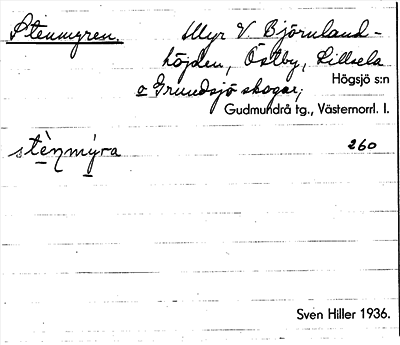 Stenmyren. Myr V. Björnland-
höjden, Östby, Lillsela
Högsjö s:n
o Grundsjö skogar,
Gudmundrå tg., Västernorrl. l.
stènmýra 260
Sven Hiller 1936.